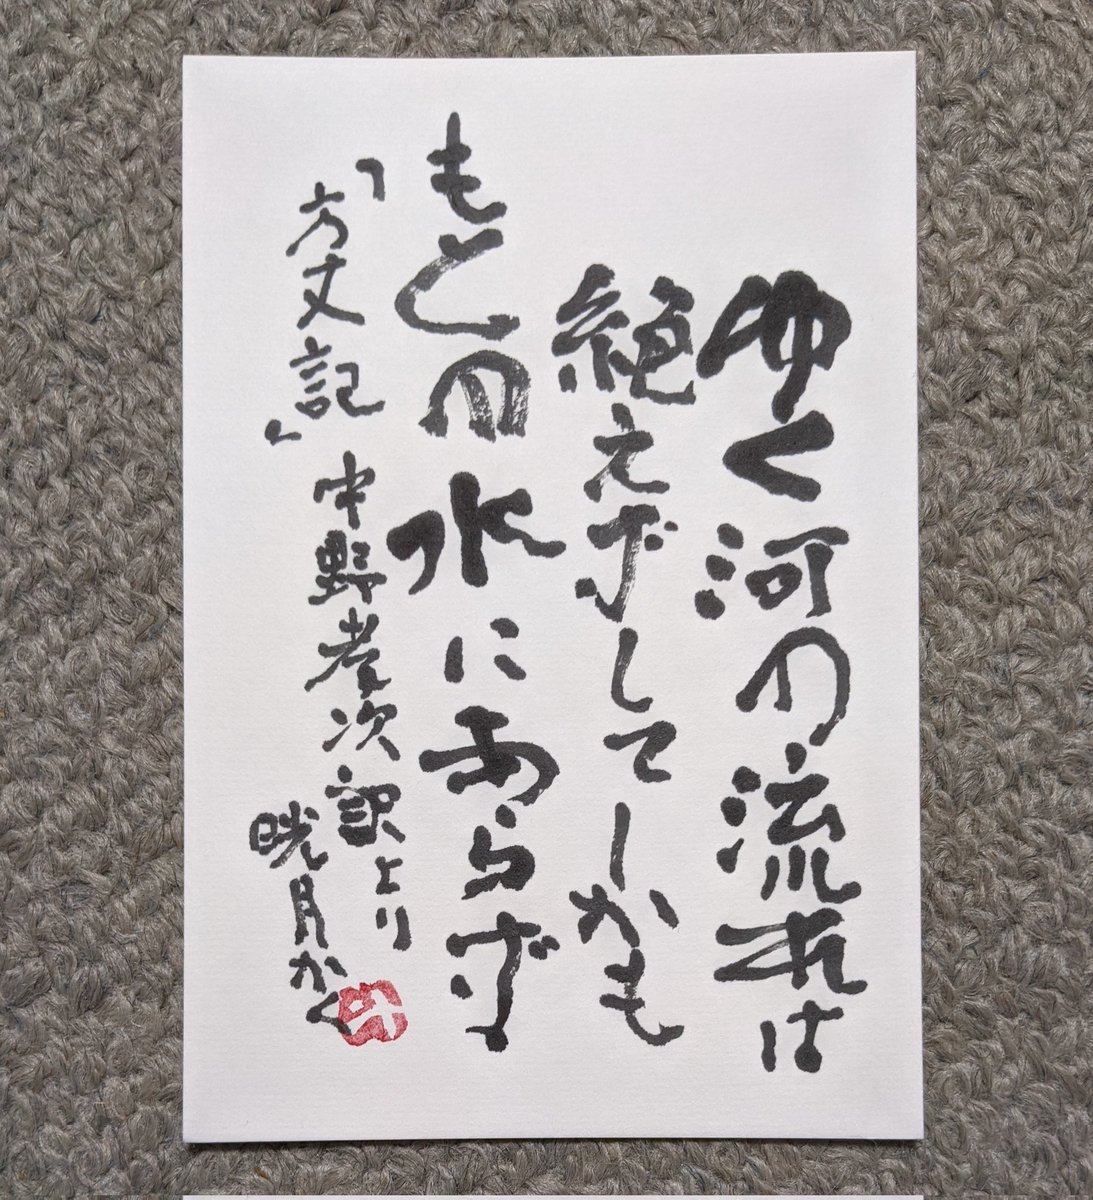 ゆく河の流れは
絶えずしてしかも
もとの水にあらず
「方丈記」中野孝次訳より
晄月かく